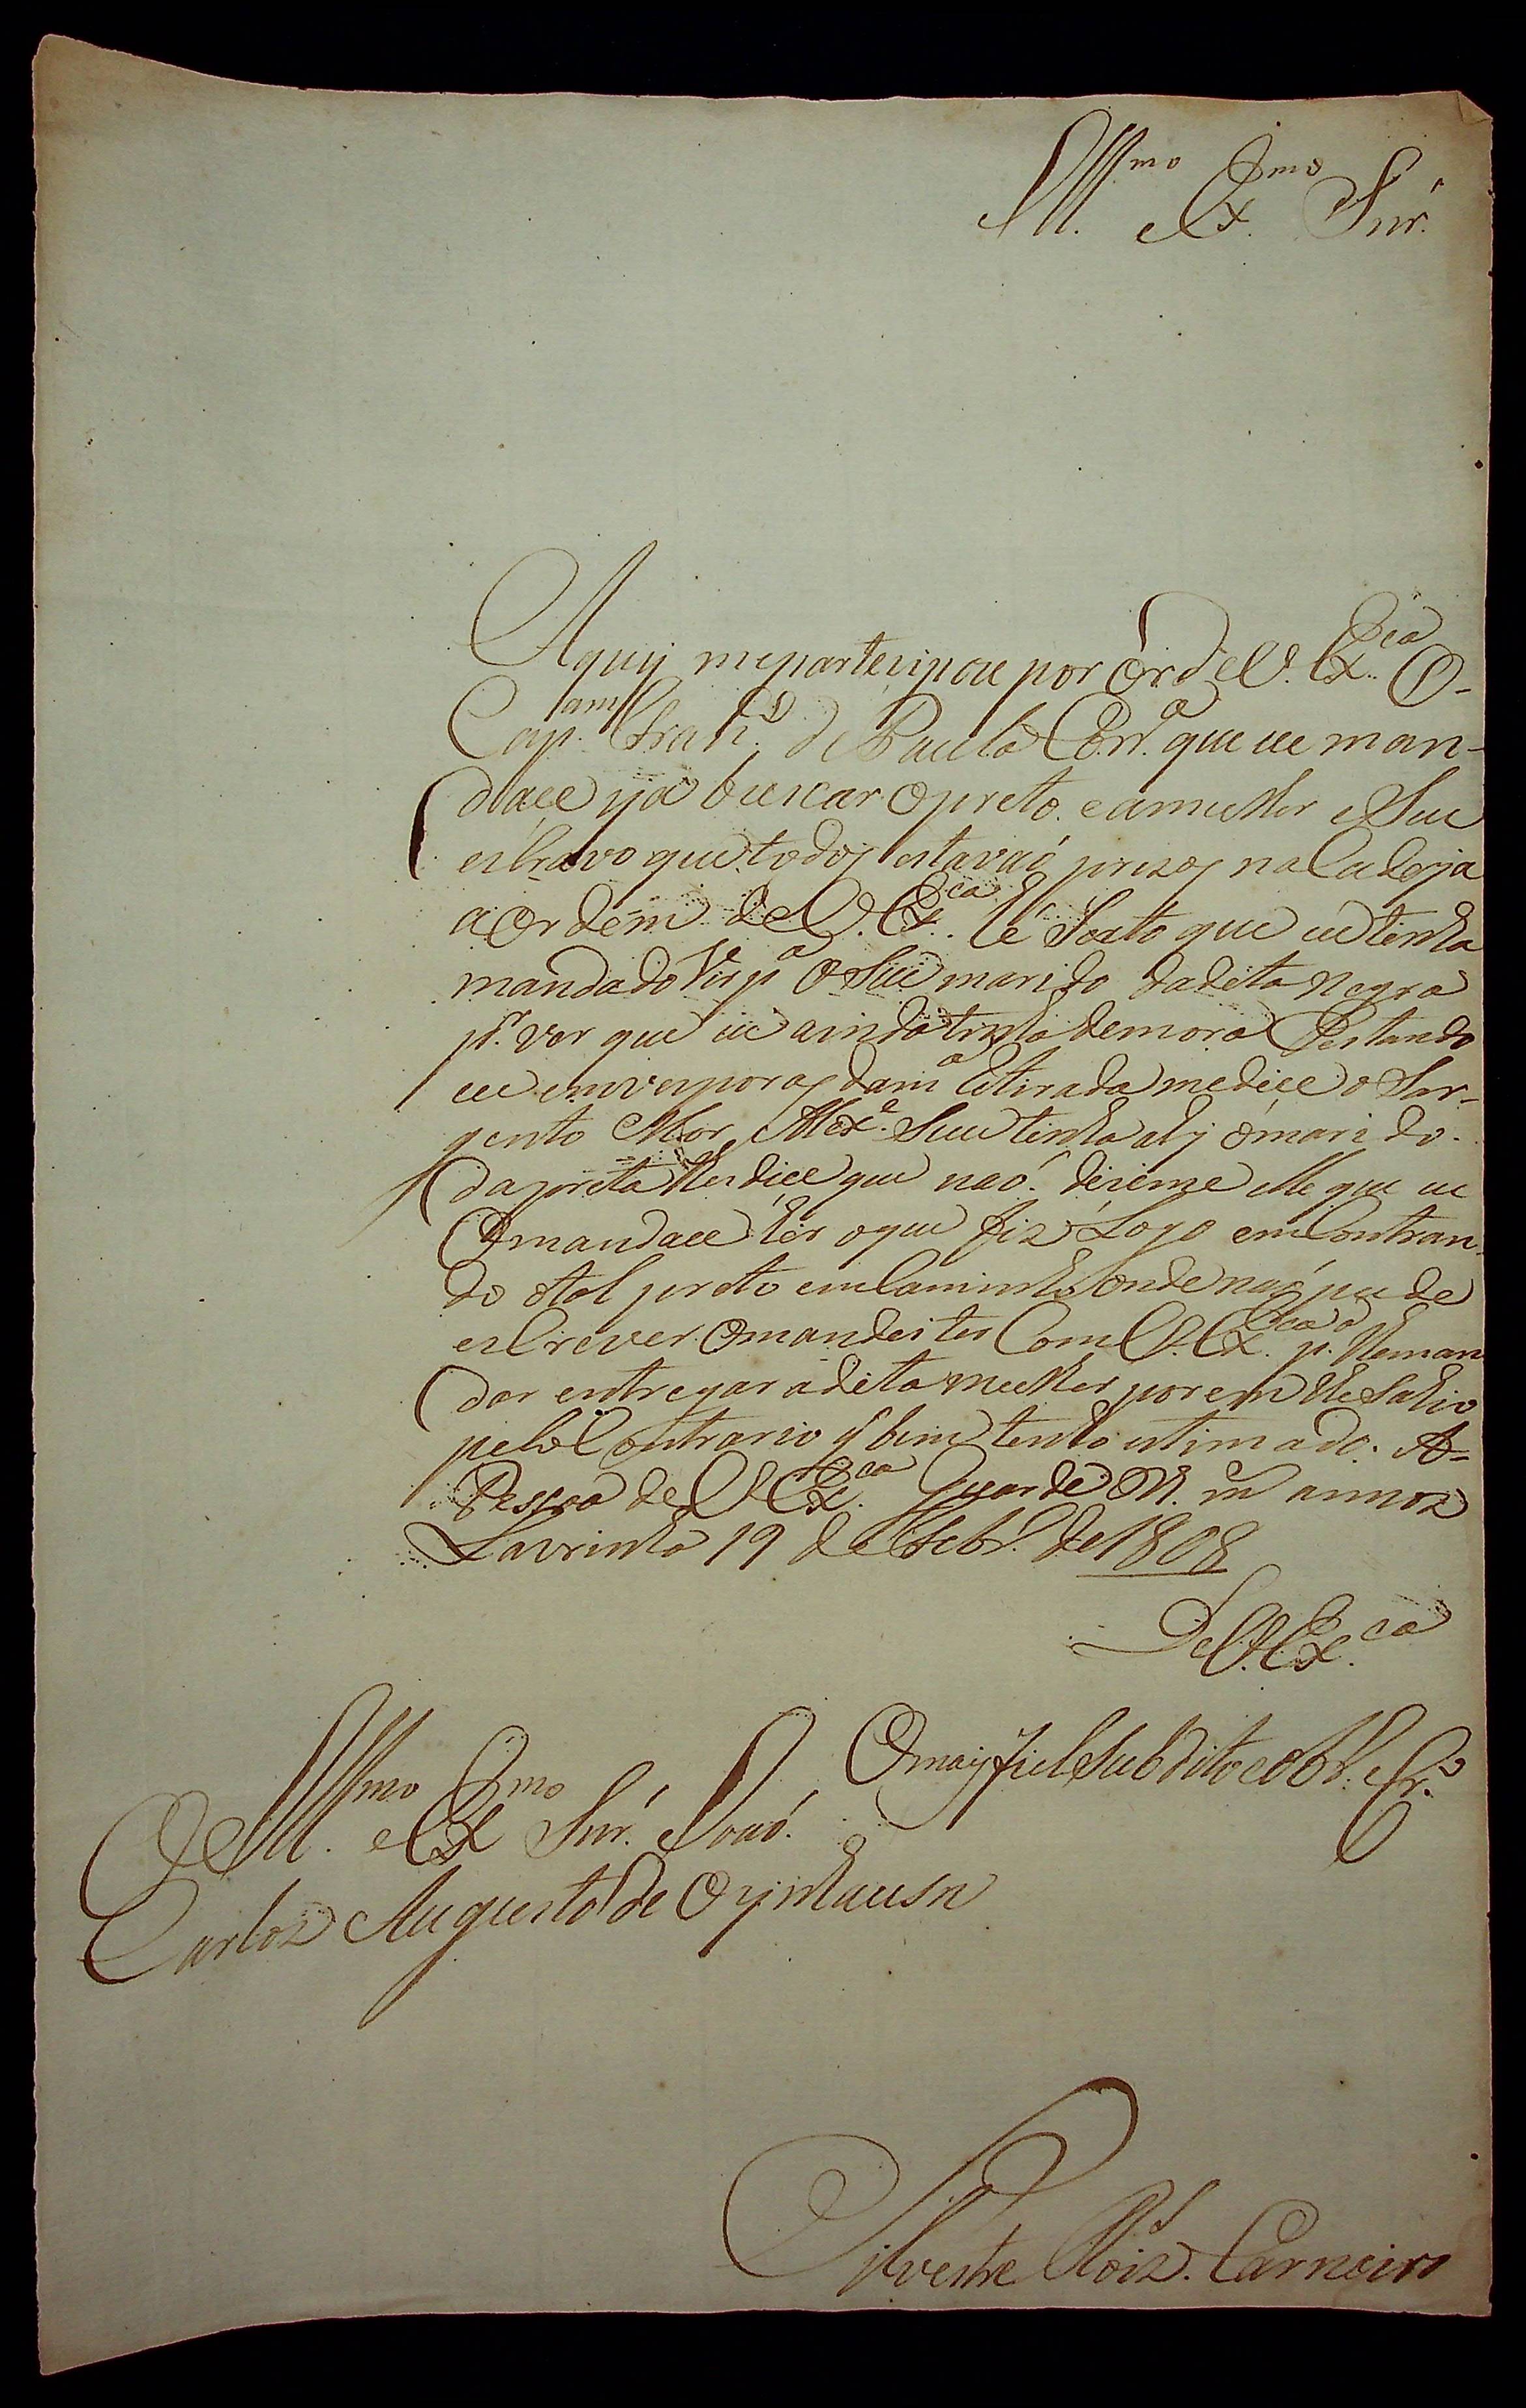 Ill.mo e Ex.mo Snr.
Aquy me partecipou por ord' de V. Ex.cia O
Cap.am Fran.co de Paula que eu man-
dace ya buscar o preto. e a mulher e Seu
escravo que todos estavaó prezos na Cadeya
a Ordem de V. Ex.ca hé Serto que eu tinha
mandado O Seu marido da dita Negra
p.r ver que eu ainda tinha demora E estando
eu em vesporas da m.a Retirada me dice o Sar-
gento Mor Alex.e Seu tinha aly o marido.
da preta lhes dice que naó. diceme elle que eu
O mandace ter o que fiz Logo emContran-
do o tal preto em Caminho onde naó pude
esCrever O mandei ter Com V. Ex.ca p.a lhe man
dar entregar a dita mulher porem lhe Sahio
pelo Contrario q' bem tenho estimado. A-
Pessoa de V. Ex.ca Guarde D.s m.s annos
Lavrinha 19 de Febr.o de 1808
De V. Ex.ca
O mais fiel Subdito e obr.o Cr.o
Ill.mo e Ex.mo Snr. Joaó.
Carlos Augusto de Oynhausn
Silvestre Roiz. Carneiro